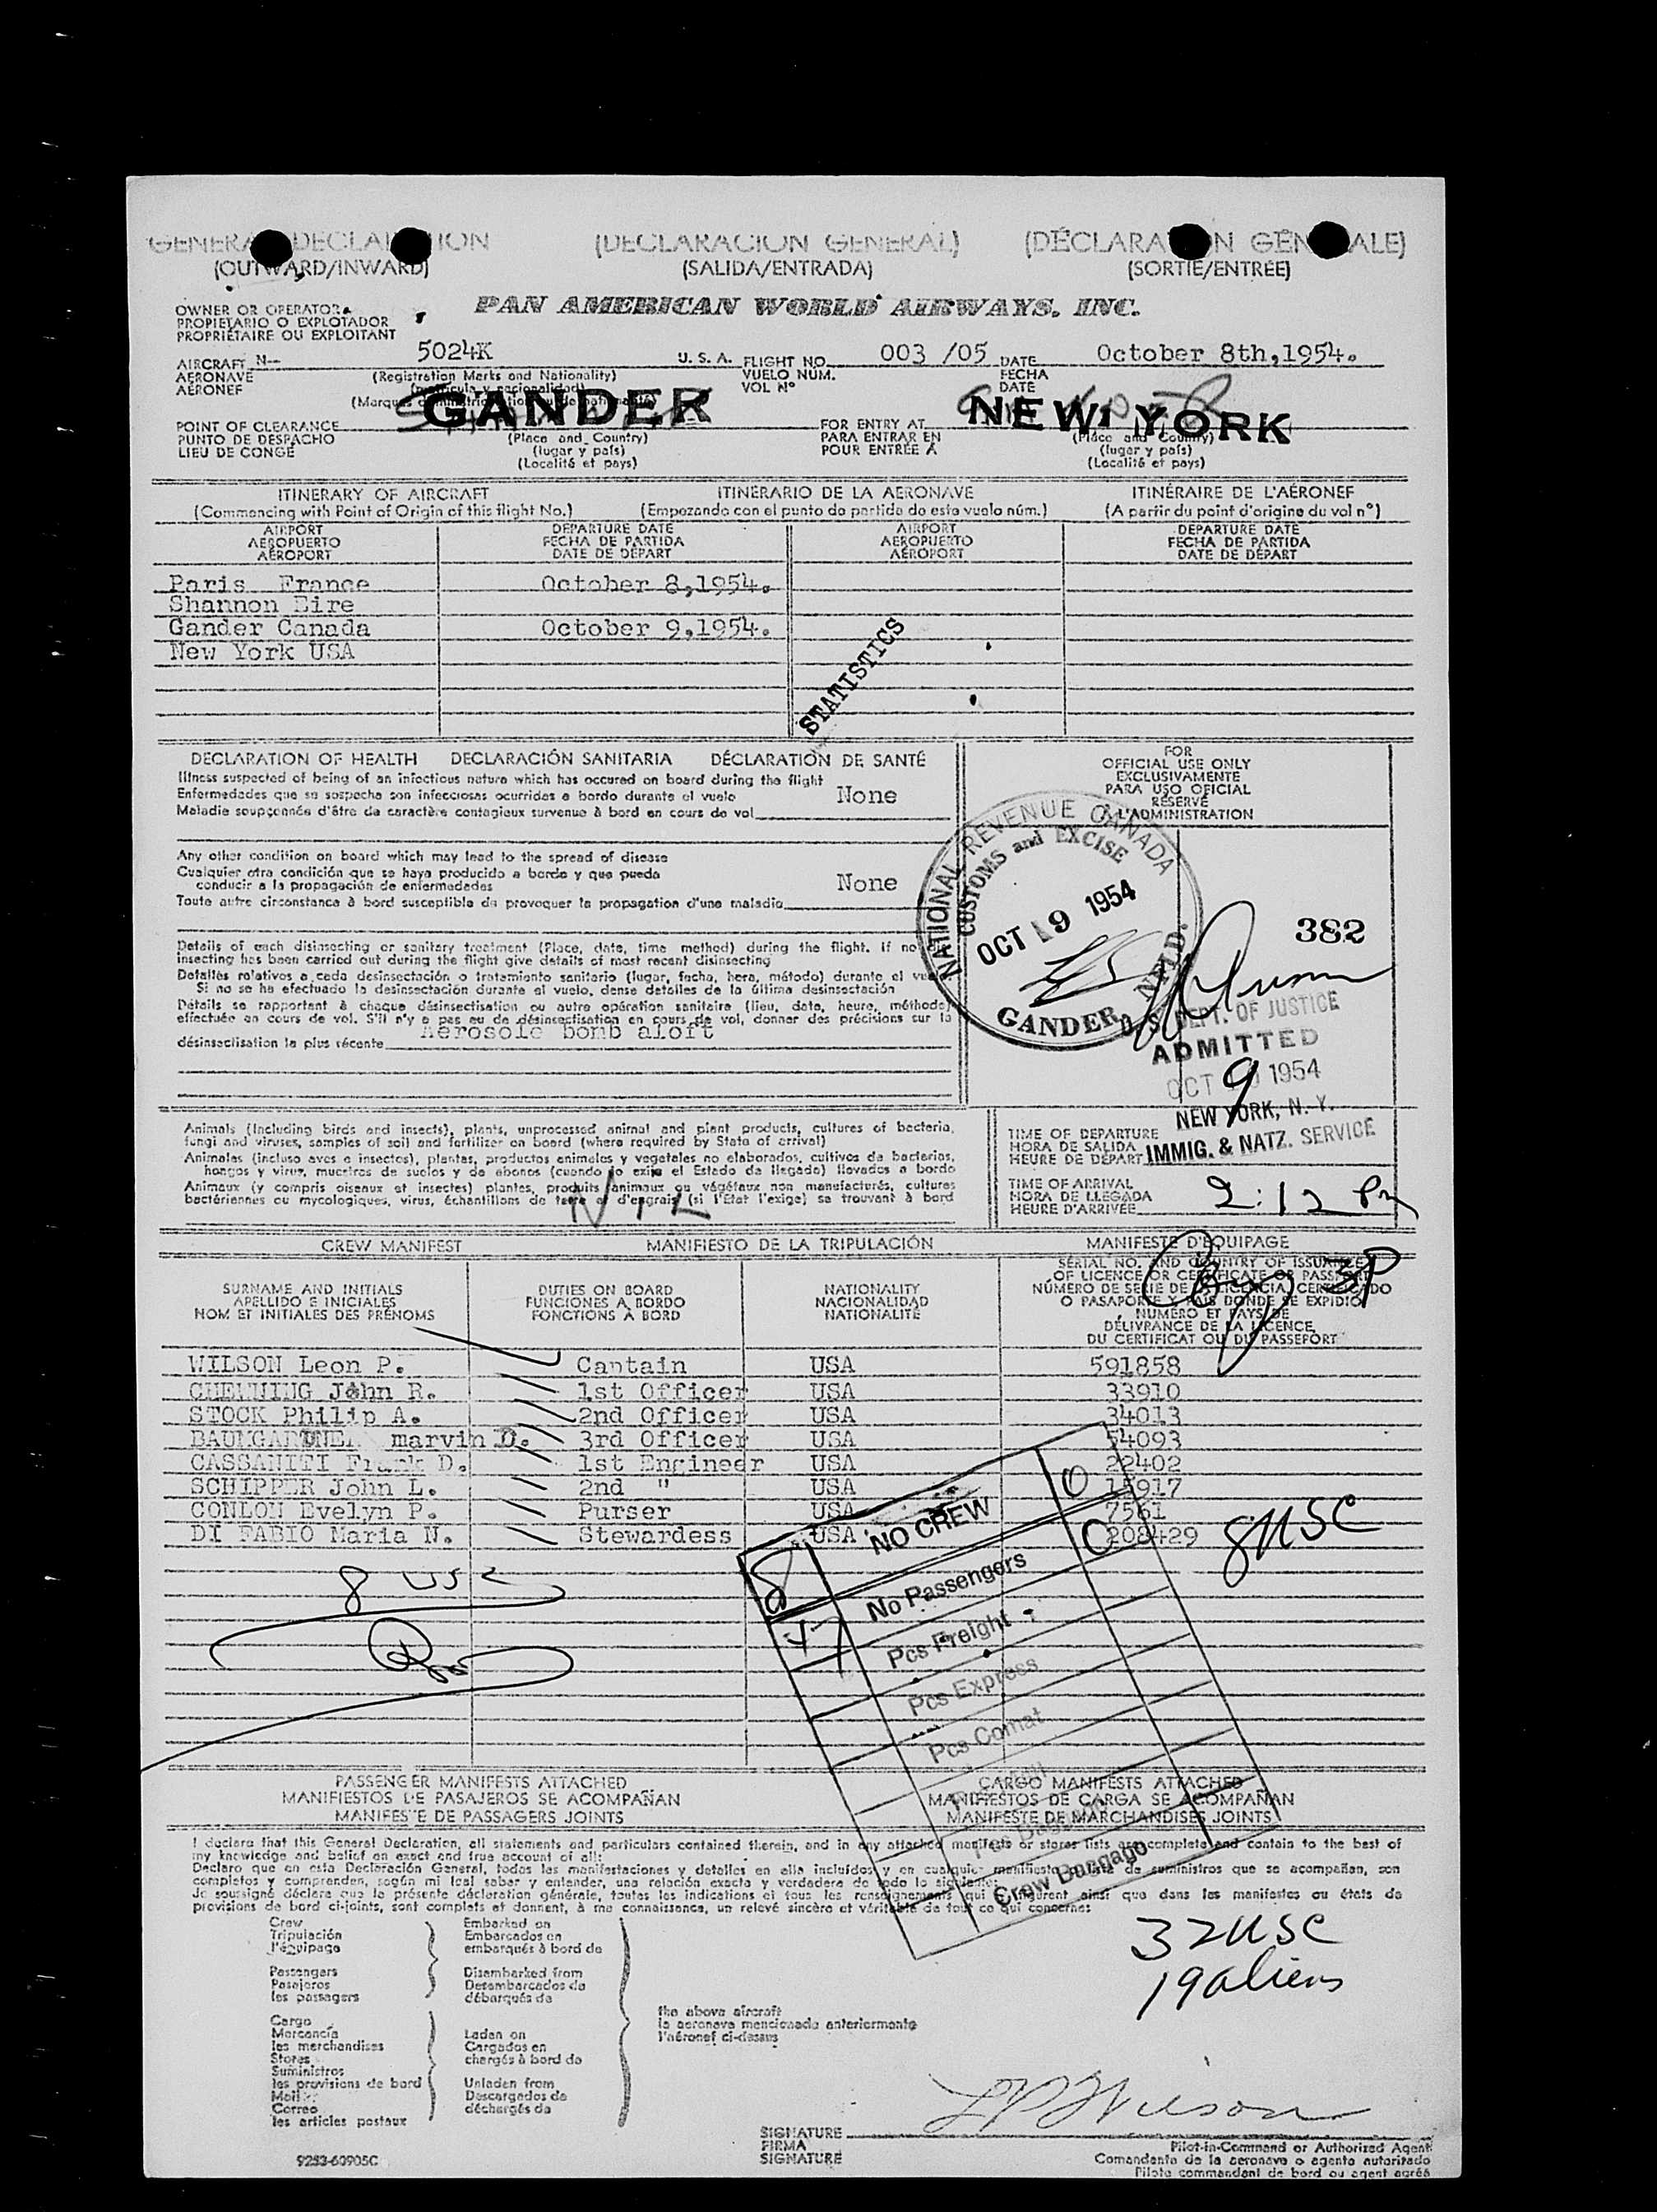 GENERAL DECLARATION (DECLARACION GENERAL) (DÉCLARATION GÉNÉRALE)
(OUTWARD/INWARD) (SALIDA/ENTRADA) (SORTIE/ENTRÉE)
OWNER OR OPERATOR
PROPIETARIO O EXPLOTADOR
PROPRIÉTAIRE OU EXPLOITANT
PAN AMERICAN WORLD AIRWAYS, INC.
AIRCRAFT N— 5024K U. S. A. FLIGHT NO. 003 /05 DATE October 8th,1954.
AERONAVE (Registration Marks and Nationality) VUELO NÚM. FECHA
AÉRONEF VOL Nº DATE
POINT OF CLEARANCE GANDER FOR ENTRY AT NEW YORK
PUNTO DE DESPACHO (Place and Country) PARA ENTRAR EN (Place and Country)
LIEU DE CONGÉ (lugar y país) POUR ENTRÉE À (lugar y país)
(Localité et pays) (Localité et pays)
ITINERARY OF AIRCRAFT ITINERARIO DE LA AERONAVE ITINÉRAIRE DE L'AÉRONEF
(Commencing with Point of Origin of this flight No.) (Empezando con el punto de partida de este vuelo núm.) (A partir du point d'origine du vol nº)
AIRPORT DEPARTURE DATE AIRPORT DEPARTURE DATE
AEROPUERTO FECHA DE PARTIDA AEROPUERTO FECHA DE PARTIDA
AÉROPORT DATE DE DÉPART AÉROPORT DATE DE DÉPART
Paris France October 8,1954.
Shannon Eire
Gander Canada October 9,1954.
New York USA
STATISTICS
DECLARATION OF HEALTH DECLARACIÓN SANITARIA DÉCLARATION DE SANTÉ
Illness suspected of being of an infectious nature which has occured on board during the flight
Enfermedades que se sospecha son infecciosas ocurridas a bordo durante el vuelo None
Maladie soupçonnée d'être de caractère contagieux survenue à bord en cours de vol
Any other condition on board which may lead to the spread of disease
Cualquier otra condición que se haya producido a bordo y que pueda
conducir a la propagación de enfermedades None
Toute autre circonstance à bord susceptible de provoquer la propagation d'une maladie
Details of each disinsecting or sanitary treatment (Place, date, time method) during the flight. If no dis-
insecting has been carried out during the flight give details of most recent disinsecting
Detalles relativos a cada desinsectación o tratamiento sanitario (lugar, fecha, hora, método) durante el vuelo
Si no se ha efectuado la desinsectación durante el vuelo, dense detalles de la última desinsectación
Détails se rapportant à chaque désinsectisation ou autre opération sanitaire (lieu, date, heure, méthode)
effectuée en cours de vol. S'il n'y a pas eu de désinsectisation en cours de vol, donner des précisions sur la
désinsectisation la plus récente Aerosole bomb aloft
FOR
OFFICIAL USE ONLY
EXCLUSIVAMENTE
PARA USO OFICIAL
RÉSERVÉ
À L'ADMINISTRATION
NATIONAL REVENUE CANADA
CUSTOMS and EXCISE
OCT 9 1954
GANDER, NFLD.
382
U. S. DEPT. OF JUSTICE
ADMITTED
OCT 9 1954
NEW YORK, N. Y.
IMMIG. & NATZ. SERVICE
Animals (Including birds and insects), plants, unprocessed animal and plant products, cultures of bacteria,
fungi and viruses, samples of soil and fertilizer on board (where required by State of arrival)
Animales (incluso aves e insectos), plantas, productos animales y vegetales no elaborados, cultivos de bacterias,
hongos y virus, muestras de suelos y de abonos (cuando lo exija el Estado de llegada) llevados a bordo
Animaux (y compris oiseaux et insectes) plantes, produits animaux ou végétaux non manufacturés, cultures
bactériennes ou mycologiques, virus, échantillons de terre et d'engrais (si l'État l'exige) se trouvant à bord
NIL
TIME OF DEPARTURE
HORA DE SALIDA
HEURE DE DÉPART
TIME OF ARRIVAL
HORA DE LLEGADA 2:12 Pm
HEURE D'ARRIVÉE
CREW MANIFEST MANIFIESTO DE LA TRIPULACIÓN MANIFESTE D'ÉQUIPAGE
SURNAME AND INITIALS DUTIES ON BOARD NATIONALITY
APELLIDO E INICIALES FUNCIONES A BORDO NACIONALIDAD
NOM ET INITIALES DES PRÉNOMS FONCTIONS À BORD NATIONALITÉ
SERIAL NO. AND COUNTRY OF ISSUANCE
OF LICENCE OR CERTIFICATE OR PASSPORT
NÚMERO DE SERIE DE LA LICENCIA, CERTIFICADO
O PASAPORTE Y PAÍS DONDE SE EXPIDIÓ
NUMÉRO ET PAYS DE
DÉLIVRANCE DE LA LICENCE,
DU CERTIFICAT OU DU PASSEPORT
WILSON Leon P. Captain USA 591858
John R. 1st Officer USA 33910
STOCK Philip A. 2nd Officer USA 34013
marvin D. 3rd Officer USA 54093
CASSANITI Frank D. 1st Engineer USA 22402
SCHIPPER John L. 2nd " USA
CONLON Evelyn P. Purser USA 7561
DI FABIO Maria N. Stewardess USA 208429
8 USC
8 USC
8 NO CREW 0
No Passengers 0
Pcs Freight
Pcs Express
Pcs Comat
Crew Baggage
PASSENGER MANIFESTS ATTACHED CARGO MANIFESTS ATTACHED
MANIFIESTOS DE PASAJEROS SE ACOMPAÑAN MANIFIESTOS DE CARGA SE ACOMPAÑAN
MANIFESTE DE PASSAGERS JOINTS MANIFESTE DE MARCHANDISES JOINTS
I declare that this General Declaration, all statements and particulars contained therein, and in any attached manifests or stores lists are complete and contain to the best of
my knowledge and belief an exact and true account of all:
Declaro que en esta Declaración General, todas las manifestaciones y detalles en ella incluídos y en cualquier manifiesto o lista de suministros que se acompañan, son
completos y comprenden, según mi leal saber y entender, una relación exacta y verdadera de todo lo siguiente:
Je soussigné déclare que la présente déclaration générale, toutes les indications et tous les renseignements qui y figurent ainsi que dans les manifestes ou états de
provisions de bord ci-joints, sont complets et donnent, à ma connaissance, un relevé sincère et véritable de tout ce qui concerne:
Crew Embarked on
Tripulación Embarcados en
l'équipage embarqués à bord de
Passengers Disembarked from
Pasajeros Desembarcados de
les passagers débarqués de
the above aircraft
la aeronave mencionada anteriormente
l'aéronef ci-dessus
Cargo
Mercancía Laden on
les merchandises Cargados en
Stores chargés à bord de
Suministros
les provisions de bord Unladen from
Mail Descargados de
Correo déchargés de
les articles postaux
32 USC
19 aliens
LP Wilson
SIGNATURE
FIRMA
SIGNATURE
Pilot-in-Command or Authorized Agent
Comandante de la aeronave o agente autorizado
Pilote commandant de bord ou agent agréé
9253-60905C